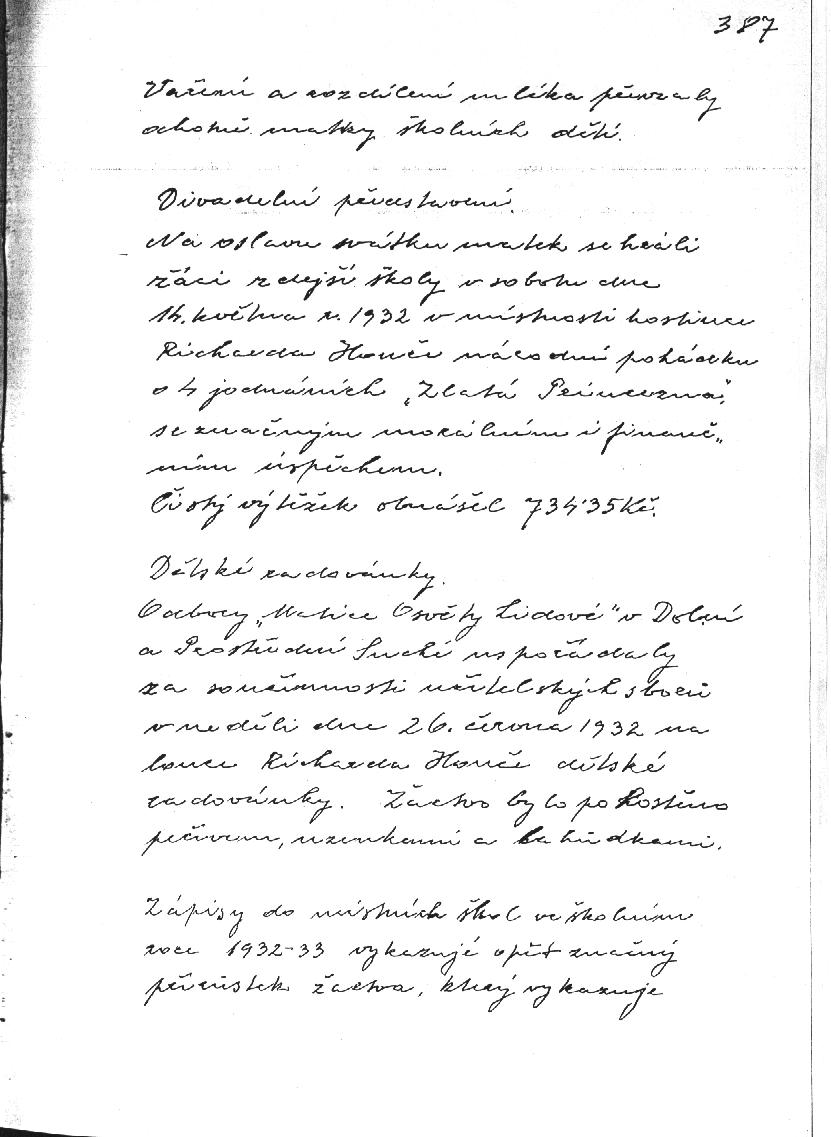 387
Vaření a rozdílení mlíka převzaly
ochotně matky školních dětí.
Divadelní představení.
Na oslavu svátku matek sehráli
žáci zdejší školy v sobotu dne
14. května r. 1932 v místnosti hostince
Richarda Honče národní pohádku
o 4 jednáních „Zlatá Princezna",
se značným morálním i finanč„
ním úspěchem.
Čistý výtěžek obnášel 734·35 Kč.
Dětské radovánky.
Odbory „Matice Osvěty Lidové" v Dolní
a Prostřední Suché uspořádaly
za součinnosti učitelských sborů
v neděli dne 26. června 1932 na
louce Richarda Honče dětské
radovánky. Žactvo bylo pohostěno
pečivem, uzenkami a lahůdkami.
Zápisy do místních škol ve školním
roce 1932-33 vykazují opět značný
přírůstek žactva, který vykazuje